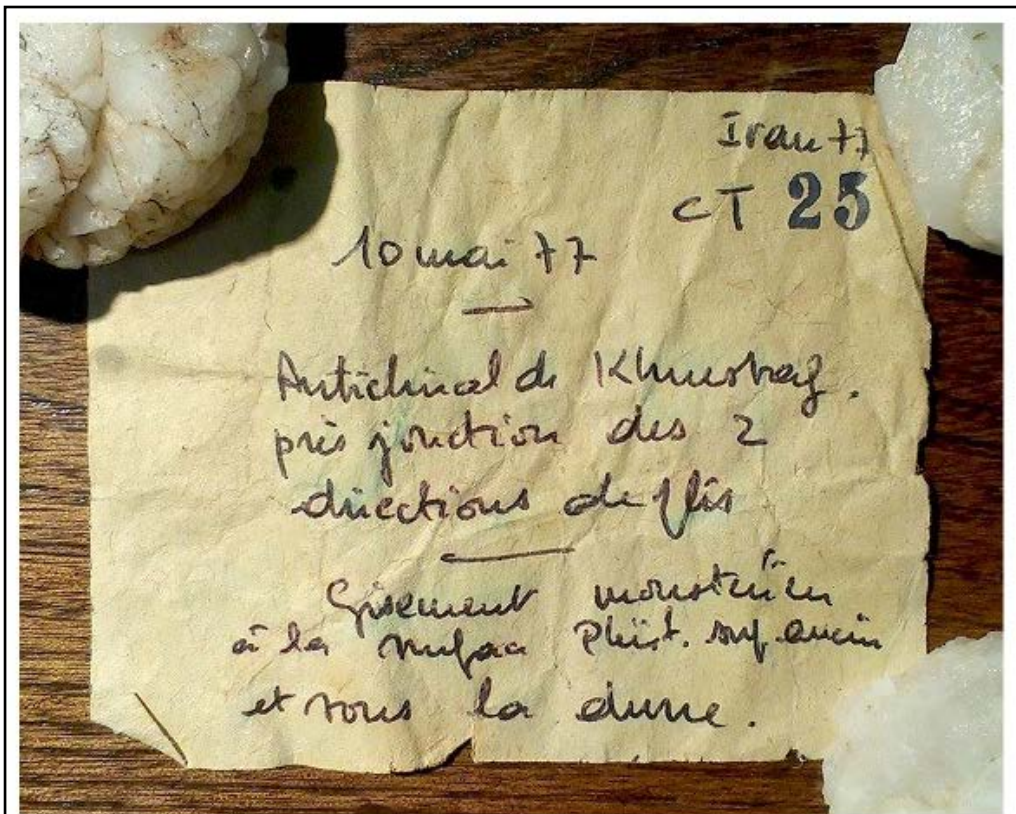 Iran 77
CT 25
10 mai 77
Anticlinal de
près jonction des 2
directions de plis
Gisement moustérien
à la surface Pléist. sup. ancien
et sous la dune.